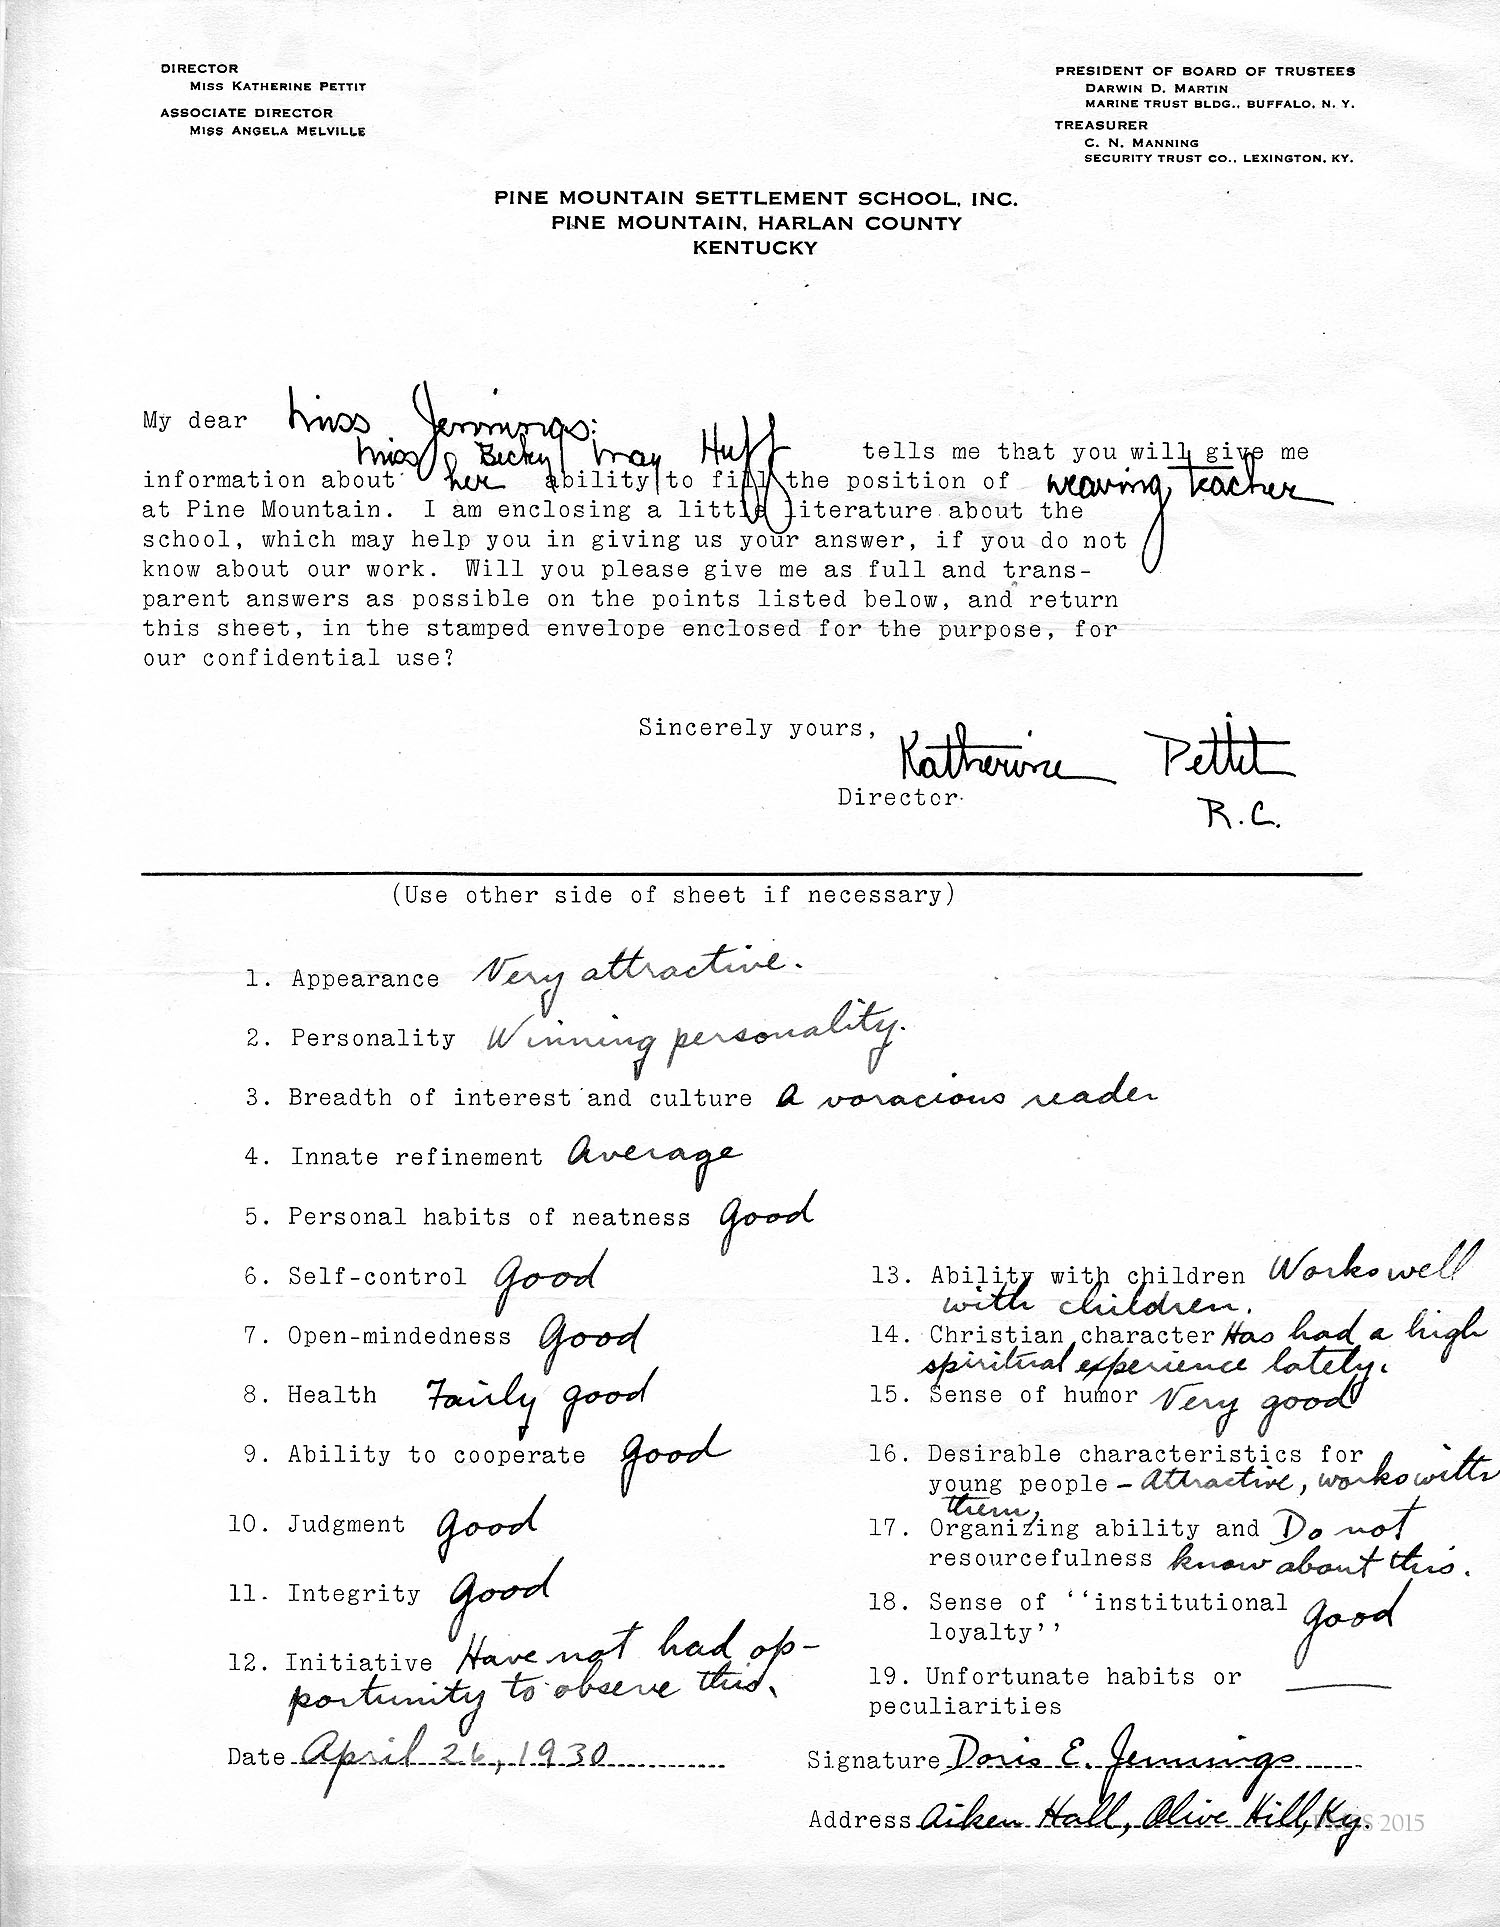 DIRECTOR
MISS KATHERINE PETTIT
ASSOCIATE DIRECTOR
MISS ANGELA MELVILLE
PRESIDENT OF BOARD OF TRUSTEES
DARWIN D. MARTIN
MARINE TRUST BLDG., BUFFALO, N. Y.
TREASURER
C. N. MANNING
SECURITY TRUST CO., LEXINGTON, KY.
PINE MOUNTAIN SETTLEMENT SCHOOL, INC.
PINE MOUNTAIN, HARLAN COUNTY
KENTUCKY
My dear Miss Jennings:
Miss Becky May Huff tells me that you will give me
information about her ability to fill the position of weaving teacher
at Pine Mountain. I am enclosing a little literature about the
school, which may help you in giving us your answer, if you do not
know about our work. Will you please give me as full and trans-
parent answers as possible on the points listed below, and return
this sheet, in the stamped envelope enclosed for the purpose, for
our confidential use?
Sincerely yours,
Katherine Pettit
Director
R.C.
(Use other side of sheet if necessary)
1. Appearance Very attractive.
2. Personality Winning personality.
3. Breadth of interest and culture A voracious reader
4. Innate refinement Average
5. Personal habits of neatness Good
6. Self-control Good
7. Open-mindedness Good
8. Health Fairly good
9. Ability to cooperate Good
10. Judgment Good
11. Integrity Good
12. Initiative Have not had op-
portunity to observe this.
13. Ability with children Works well
with children.
14. Christian character Has had a high
spiritual experience lately.
15. Sense of humor Very good
16. Desirable characteristics for
young people - Attractive, works with
them,
17. Organizing ability and Do not
resourcefulness know about this.
18. Sense of ''institutional Good
loyalty''
19. Unfortunate habits or
peculiarities
Date April 26, 1930
Signature Doris E. Jennings
Address Aiken Hall, Olive Hill, Ky.
2015